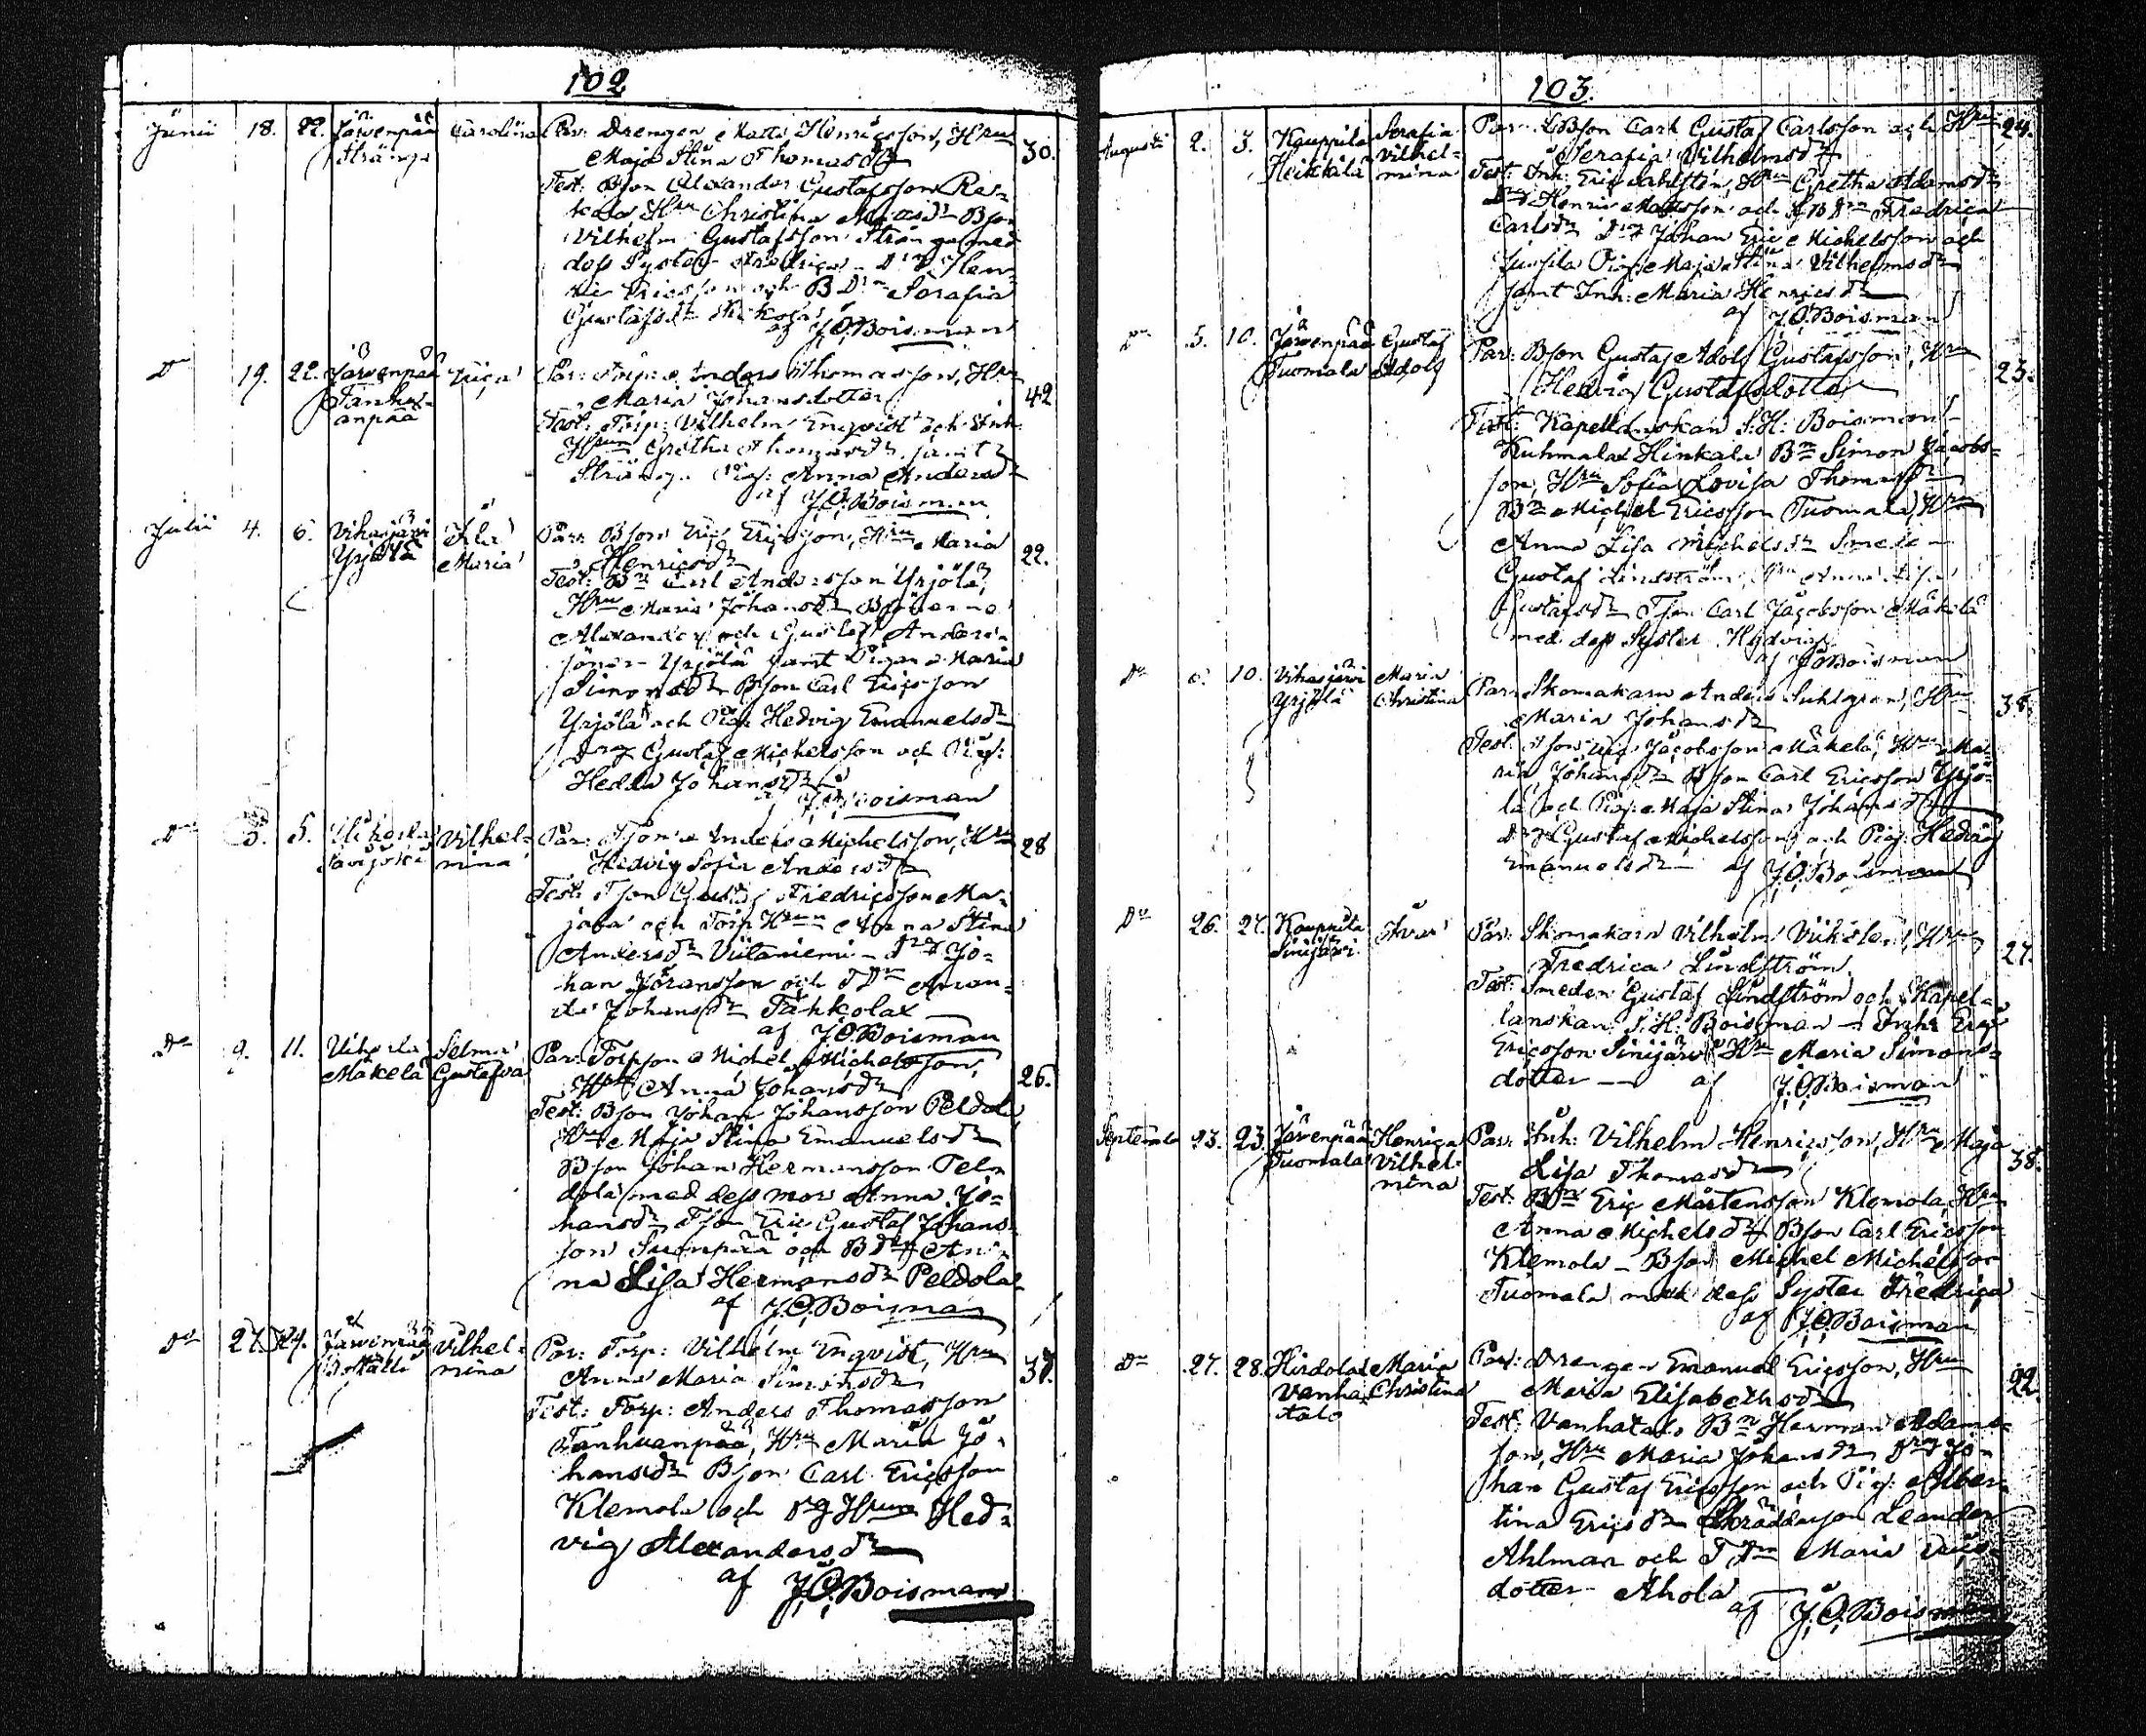 102
Junii 18. 22. Järvenpää Carolina Par: Drengen Matts Henricsson, Hru 30.
Stränge Maja Stina Thomasdr
Test: Bson Alexander Gustafsson Ras-
kala Hru Christina Bson
Vilhelm Gustafsson Stränge med
dess Syster Fredrica Drg Hen-
ric Ericsson och BDrn Serafia
Gustafsdr
af J.O. Boisman
Do 19. 22. Järvenpää Erica Par: Torp: Anders Thomasson, Hru 42
Tanhu- Maria Johansdotter
anpää Test: Torp: Vilhelm Enqvist och Inh:
Hrun Gretha Thomasdr samt
Pig: Anna Andersdr
af J.O. Boisman
Julii 4. 6. Vihasjärvi Ida Par: Bson Eric Ericsson, Hru Maria 22.
Yrjölä Maria Henricsdr
Test: Bn Carl Andersson Yrjölä,
Hru Maria Johansdr Bönerne
Alexander och Gustaf Anders-
söner Yrjölä samt Pigan Maria
Simonsdr Bson Carl Ericsson
Yrjölä och Pig: Hedvig Emanuelsdr
Drg Gustaf Michelsson och Pig:
Hedda Johansdr
af J.O. Boisman
Do 5. Vilhel- Par: Tson Anders Michelsson, Hru 28
mina Hedvig Sofia Andersdr
Test: Tson Gustaf Fredricsson Ma-
jaba och Torp Hrun Anna Stina
Andersdr Viitaniemi - Drg Jo-
han Jöransson och TDrn Aman-
da Johansdr Tähkolax
af J.O. Boisman
Do 9. 11. Selma Par: Torpson Michel Michelsson, 26.
Mäkelä Gustafva Hru Anna Johansdr
Test: Bson Johan Johansson Peldola
Hru Maja Stina Emanuelsdr
Bson Johan Hermansson Pel-
dola med dess mor Anna Jo-
hansdr Tson Eric Gustaf Johans-
son Suonpää och BDtr An-
na Lisa Hermansdr Peldola
af J.O. Boisman
Do 27. 29. Järvenpää Vilhel- Par: Torp: Vilhelm Enqvist, Hru 37.
mina Anna Maria Simonsdr
Test: Torp: Anders Thomasson
Tanhuanpää, Hru Maria Jo-
hansdr Bson Carl Ericsson
Klemola och Drg Hrun Hed-
vig Alexandersdr
af J.O. Boisman
103.
Augusti 2. 3. Kauppila Serafia Par: LBson Carl Gustaf Carlsson och Hru 24.
Heikkilä Vilhel- Serafia Vilhelmsdr
mina Test: Inh: Eric Dahlsten, Hru Gretha Adamsdr
Drg Henric Mattsson och LBDrn Fredrica
Carlsdr Drg Johan Eric Michelsson och
Pig: Maja Stina Vilhelmsdr
samt Inh: Maria Henricsdr
af J.O. Boisman
Do 5. 10. Järvenpää Gustaf Par: Bson Gustaf Adolf Gustafsson, Hru 23.
Tuomala Adolf Hedvig Gustafsdotter
Test: Kapellanskan S.H. Boisman -
Kuhmalax Hinkala Bn Simon Jacobs-
son, Hru Sofia Lovisa Thomasdr
Bn Michel Ericsson Tuomala, Hru
Anna Lisa Michelsdr
Gustaf Lindström, Hru Anna Lisa
Gustafsdr Tson Carl Jacobsson Mäkelä
med dess Syster Hedvig
af J.O. Boisman
Do 6. 10. Vihasjärvi Maria Par: Skomakarn Anders Suhlgren, Hru 38.
Yrjölä Christina Maria Johansdr
Test: Tson Eric Jacobsson Mäkelä, Hru Ma-
ria Johansdr Bson Carl Ericsson Yrjö-
lä och Pig: Maja Stina Johansdr
Drg Gustaf Michelsson och Pig: Hedvig
Emanuelsdr af J.O. Boisman
Do 26. 27. Kauppila Par: Skomakarn Vilhelm Hru 27.
Sinijärvi Fredrica Lindström
Test: Smeden Gustaf Lindström och Kapel-
lanskan S.H. Boisman - Inh: Eric
Ericsson Sinijärvi Hru Maria Simons-
dotter - af J.O. Boisman
September 23. 23. Järvenpää Henrica Par: Inh: Vilhelm Henricsson, Hru Maja 38.
Tuomala Vilhel- Lisa Thomasdr
mina Test: Bn Eric Mårtensson Klemola, Hru
Anna Michelsdr Bson Carl Ericsson
Klemola - Bson Michel Michelsson
Tuomala med dess Syster Fredrica
af J.O. Boisman
Do 27. 28. Hirdolax Maria Par: Drengen Emanuel Ericsson, Hru 22.
Vanha- Christina Maria Elisabethsdr
talo Test: Vanhatalo Bn Herman Adams-
son, Hru Maria Johansdr Drg Jo-
han Gustaf Ericsson och Pig: Alber-
tina Ericsdr Skräddarson Leander
Ahlman och TDrn Maria Erics-
dotter Ahola
af J.O. Boisman